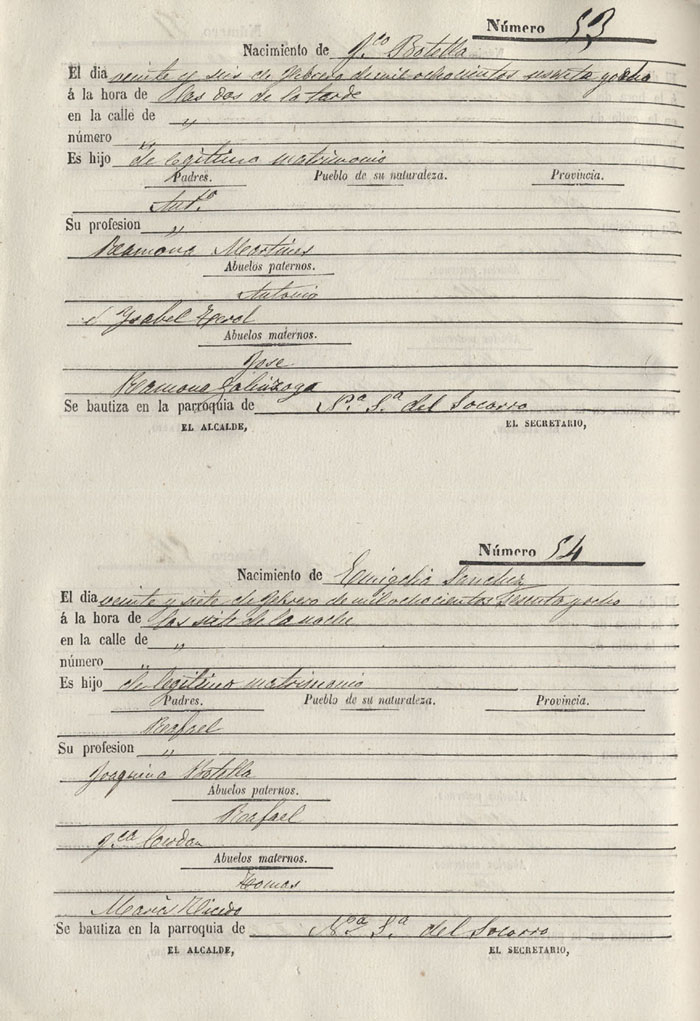 Número 53
Nacimiento de Fco Botella
El dia veinte y seis de febrero de mil ochocientos sesenta y ocho
á la hora de las dos de la tarde
en la calle de "
número "
Es hijo de legitimo matrimonio
Padres. Pueblo de su naturaleza. Provincia.
Anto.
Su profesion "
Ramona Martines
Abuelos paternos.
Antonio
é Ysabel
Abuelos maternos.
Jose
Ramona
Se bautiza en la parroquia de Na. Sa. del Socorro
EL ALCALDE, EL SECRETARIO,
Número 54
Nacimiento de Sanchez
El dia veinte y siete de febrero de mil ochocientos sesenta y ocho
á la hora de las siete de la noche
en la calle de "
número "
Es hijo de legitimo matrimonio
Padres. Pueblo de su naturaleza. Provincia.
Rafael
Su profesion "
Joaquina Botella
Abuelos paternos.
Rafael
Fca Cerdan
Abuelos maternos.
Tomas
Maria
Se bautiza en la parroquia de Na. Sa. del Socorro
EL ALCALDE, EL SECRETARIO,